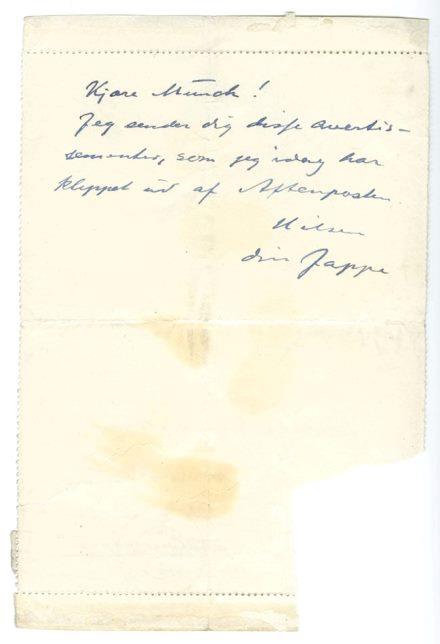 Kjære Munch!
Jeg sender dig disse avertis-
sementer, som jeg idag har
klippet ud af Aftenposten.
Hilsen
din Jappe